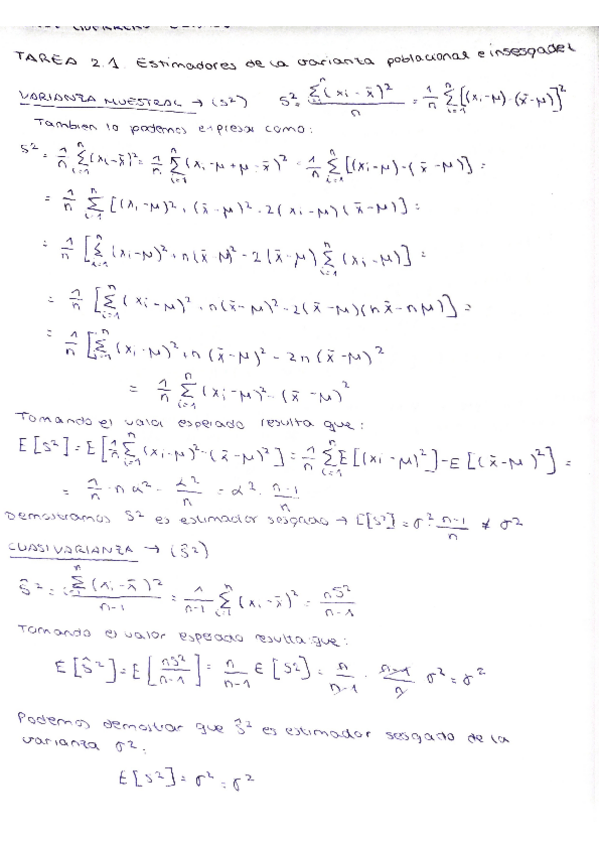 TAREA 2.1. Estimadores de la varianza poblacional e insesgadel
VARIANZA MUESTRAL → (S²) S² = Σⁿ(xi - x̄)² / n = 1/n Σⁿᵢ₌₁ [(xi - μ) - (x̄ - μ)]²
Tambien lo podemos expresar como:
S² = 1/n Σⁿᵢ₌₁ (xi - x̄)² = 1/n Σⁿᵢ₌₁ (xi - μ + μ - x̄)² = 1/n Σⁿᵢ₌₁ [(xi - μ) - (x̄ - μ)] =
= 1/n Σⁿᵢ₌₁ [(xi - μ)² + (x̄ - μ)² - 2(xi - μ)(x̄ - μ)] =
= 1/n [Σⁿᵢ₌₁ (xi - μ)² + n(x̄ - μ)² - 2(x̄ - μ) Σⁿᵢ₌₁ (xi - μ)] =
= 1/n [Σⁿᵢ₌₁ (xi - μ)² + n(x̄ - μ)² - 2(x̄ - μ)(nx̄ - nμ)] =
= 1/n [Σⁿᵢ₌₁ (xi - μ)² + n(x̄ - μ)² - 2n(x̄ - μ)²
= 1/n Σⁿᵢ₌₁ (xi - μ)² - (x̄ - μ)²
Tomando el valor esperado resulta que:
E[S²] = E[1/n Σⁿᵢ₌₁ (xi - μ)² - (x̄ - μ)²] = 1/n Σⁿᵢ₌₁ E[(xi - μ)²] - E[(x̄ - μ)²] =
= 1/n · n α² - α²/n = α² · n-1/n
Demostramos S² es estimador sesgado → E[S²] = σ² · n-1/n ≠ σ²
CUASIVARIANZA → (Ŝ²)
Ŝ² = Σⁿᵢ (xi - x̄)² / n-1 = 1/n-1 Σⁿᵢ₌₁ (xi - x̄)² = nS²/n-1
Tomando el valor esperado resulta que:
E[Ŝ²] = E[nS²/n-1] = n/n-1 E[S²] = n/n-1 · n-1/n σ² = σ²
Podemos demostrar que Ŝ² es estimador sesgado de la
varianza σ²:
E[S²] = σ² = σ²